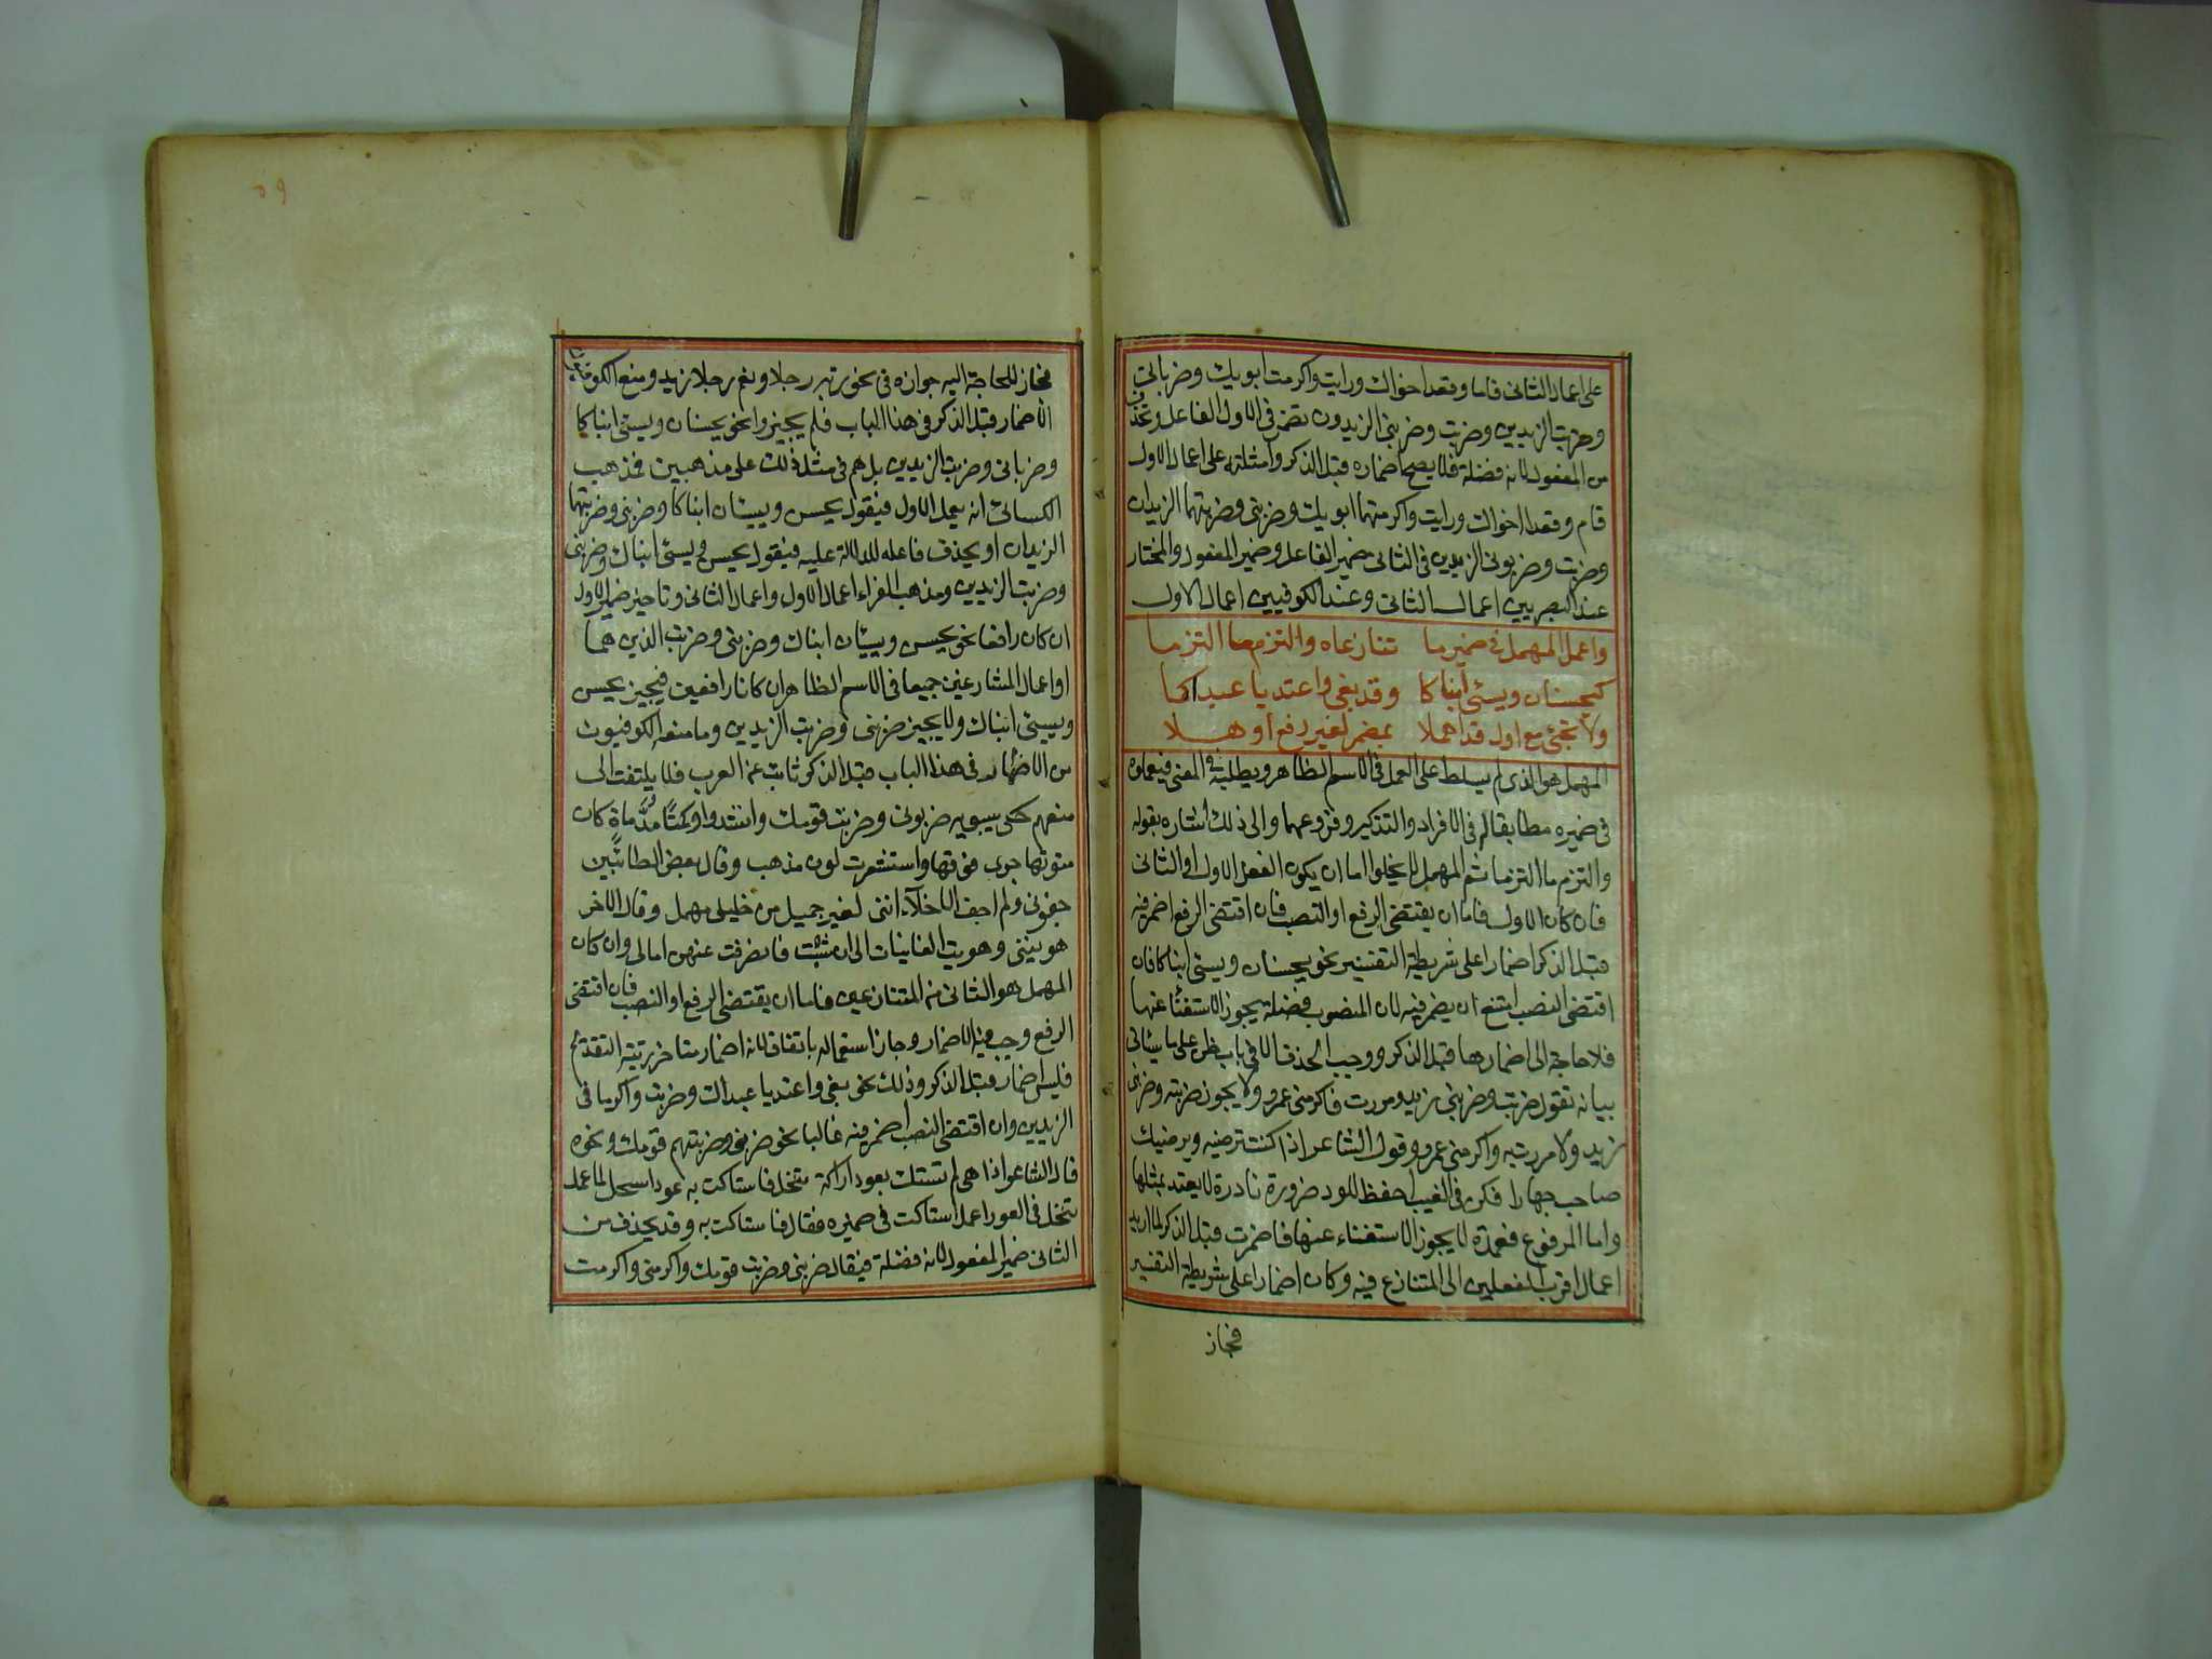 على اعمال الثانى قاما وقعد اخواك ورايت واكرمت ابويك وضربانى
وضربت الزيدين وضربت وضربنى الزيدون تضمر فى الاول الفاعل وتحذف
من المفعول لانه فضلة فلا يصح اضماره قبل الذكر وامثلته على اعمال الاول
قام وقعدا اخواك ورايت واكرمتهما ابويك وضربنى وضربتهما الزيدان
وضربت وضربونى الزيدين فى الثانى ضمير الفاعل وضمير المفعول والمختار
عند البصريين اعمال الثانى وعند الكوفيين اعمال الاول
واعمل المهمل فى ضمير ما تنازعاه والتزم ما التزما
كيحسنان ويسئى ابناكا وقد بغى واعتديا عبداكا
ولا تجئ مع اول قد اهملا بمضمر لغير رفع اوهلا
المهمل هو الذى لم يسلط على العمل فى الاسم الظاهر ويطلبه فى المعنى فيعملوه
فى ضميره مطابقا له فى الافراد والتذكير وفروعهما والى ذلك اشاره بقوله
والتزم ما التزما ثم المهمل لا يخلوا اما ان يكون الفعل الاول او الثانى
فان كان الاول فاما ان يقتضى الرفع او النصب فان اقتضى الرفع اضمر فيه
قبل الذكر اضمارا على شريطة التفسير نحو يحسنان ويسئى ابناكا فان
اقتضى النصب امتنع ان يضمر فيه لان المنصوب فضلة يجوز الاستغناء عنها
فلا حاجة الى اضمارها قبل الذكر ووجب الحذف الا فى باب ظن على ما يساتى
بيانه تقول ضربت وضربنى زيد ومررت فاكرمنى عمرو ولا يجوز ضربته وضربنى
زيد ولا مررت به واكرمنى عمرو وقول الشاعر اذا كنت ترضيه ويرضيك
صاحب جهارا فكن فى الغيب احفظ للود ضرورة نادرة لا يعتد بمثلها
واما المرفوع فعمدة لا يجوز الاستغناء عنها فاضمرت قبل الذكر لما اريد
اعمال اقرب الفعلين الى المتنازع فيه وكان اضمارا على شريطة التفسير
فجاز
٥٩
فجاز للحاجة اليه جوازه فى نحو ربه رجلا ونعم رجلا زيد ومنع الكوفيون
الاضمار قبل الذكر فى هذا الباب فلم يجيزوا نحو يحسنان ويسئى ابناكا
وضربانى وضربت الزيدين بل هم فى مثل ذلك على مذهبين فذهب
الكسائى انه يعمل الاول فيقول يحسن ويسيئان ابناكا وضربنى وضربتهما
الزيدان او يحذف فاعله للدلالة عليه فيقول يحسن ويسئى ابناك وضربنى
وضربت الزيدين ومذهب الفراء اعمال الاول واعمال الثانى وتاخير ضمير الاول
ان كان رافعا نحو يحسن ويسيئان ابناك وضربنى وضربت الذين هما
او اعمال المتنازعين جميعا فى الاسم الظاهر ان كانا رافعين فيجيز يحسن
ويسيئ ابناك ولا يجيز ضربنى وضربت الزيدين وما منعه الكوفيون
من الاضمار فى هذا الباب قبل الذكر ثابت عن العرب فلا يلتفت الى
منعهم حكى سيبويه ضربونى وضربت قومك وانشدوا وكمتا مدماة كان
متونها جرى فوقها واستشعرت لون مذهب وقال بعض الطائيين
جفونى ولم اجف الاخلاء اننى لغير جميل من خليلى مهمل وقال الاخر
هوينى وهويت الغانيات الى ان شبت فانصرفت عنهن امالى وان كان
المهمل هو الثانى من المتنازعين فاما ان يقتضى الرفع او النصب فان اقتضى
الرفع وجب فيه الاضمار وجاز استعماله باتفاق لانه اضمار متاخر رتبته التقديم
فليس اضمار قبل الذكر وذلك نحو بغى واعتديا عبداك وضربت واكرمانى
الزيدين وان اقتضى النصب اضمر فيه غالبا نحو ضربنى وضربتهم قومك ونحوه
قال الشاعر اذا هى لم تستك بعود اراكة تنخل فاستاكت به عود اسحل لما عمل
تنخل فى العود اعمل استاكت فى ضميره فقال فاستاكت به وقد يحذف من
الثانى ضمير المفعول لانه فضلة فيقال ضربنى وضربت قومك واكرمنى واكرمت